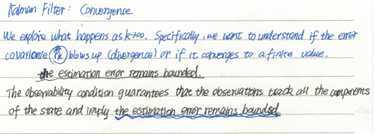 Kalman Filter: Convergence
We explore what happens as k→∞. Specifically, we want to understand if the error
covariance (Pk) blows up (divergence) or if it converges to a finite value.
the estimation error remains bounded.
The observability condition guarantees that the observations track all the components
of the state and imply the estimation error remains bounded